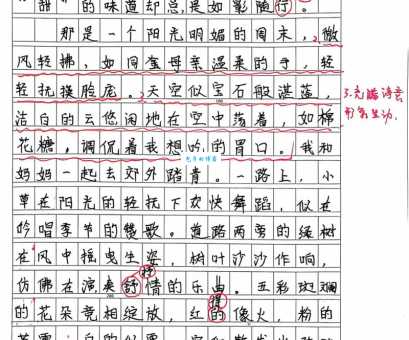 甜 的味道却总是如影随行。
那是一个阳光明媚的周末,微
风轻拂,如同圣母亲温柔的手,轻
轻抚摸脸庞。天空似宝石般湛蓝,
洁白的云悠闲地在空中荡着,如棉
花糖,调侃着我想吃的胃口。我和
妈妈一起去郊外踏青。一路上,小
草在阳光的轻抚下欢快舞蹈,似在
吟唱季节的赞歌。道路两旁的绿树
在风中摇曳生姿,树叶沙沙作响,
仿佛在演奏舒情的乐曲。五彩斑斓
抒
的花朵竞相绽放,红的像火,粉的
得
3.充满诗意
形象生动.